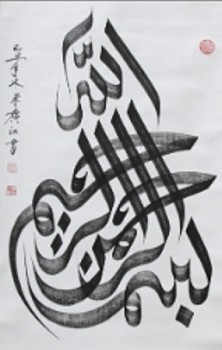 بسم الله الرحمن الرحيم
己丑年 米廣江書